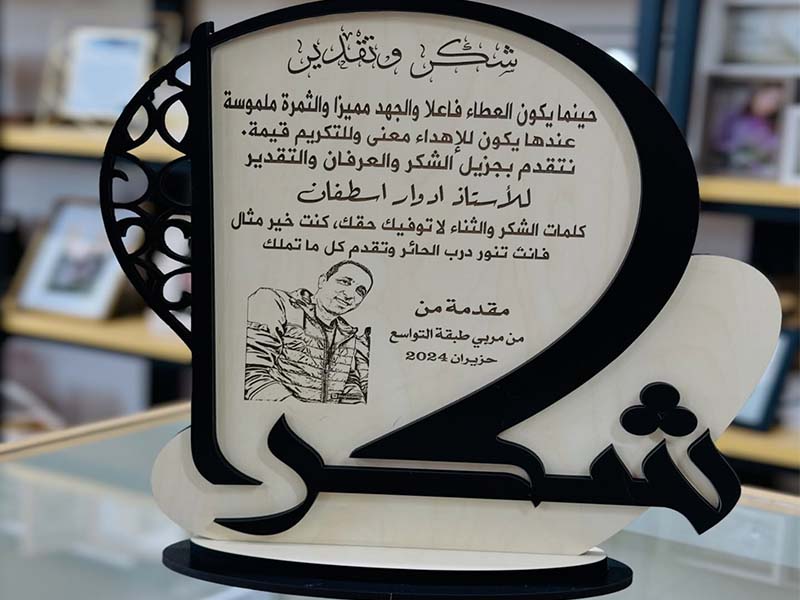 شكر وتقدير
حينما يكون العطاء فاعلا والجهد مميزا والثمرة ملموسة
عندها يكون للإهداء معنى وللتكريم قيمة.
نتقدم بجزيل الشكر والعرفان والتقدير
للأستاذ ادوار اسطفان
كلمات الشكر والثناء لا توفيك حقك، كنت خير مثال
فانت تنور درب الحائر وتقدم كل ما تملك
مقدمة من
من مربي طبقة التواسع
حزيران 2024
شكرا